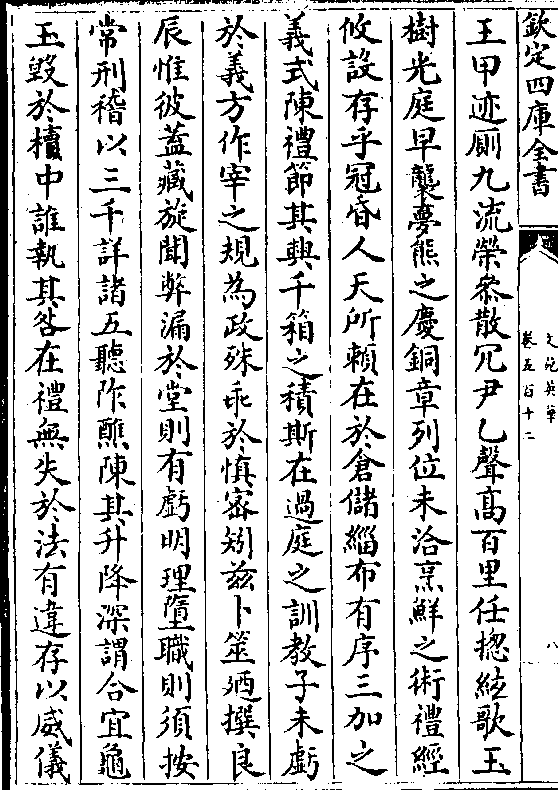 欽定四庫全書
文苑英華
卷五百十二
八
王甲迹廁九流榮叅散冗尹乙聲髙百里任揔絃歌玉
樹光庭早襲夢熊之慶銅章列位未洽烹鮮之術禮經
攸設存乎冠昏人天所頼在於倉儲緇布有序三加之
義式陳禮節其興千箱之積斯在過庭之訓教子未虧
於義方作宰之規為政殊乖於慎宻矧兹卜筮廼撰良
辰惟彼蓋藏旋聞弊漏於堂則有虧明理墮職則須按
常刑稽以三千詳諸五聽阼醮陳其升降深謂合宜龜
玉毀於櫝中誰執其咎在禮無失於法有違存以威儀